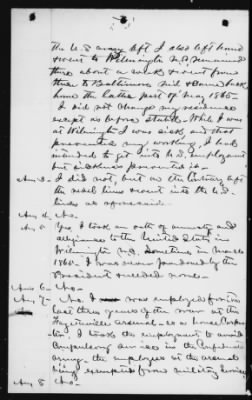 the U.S. army left I also left home
& went to Wilmington N.C. remained
there about a week & went from
there to Baltimore Md & came back
home the latter part of May 1865.
I did not change my residence
except as before stated. While I was
at Wilmington I was sick, and that
prevented my working, I had
intended to get into U.S. employment
but sickness prevented it.
Ans 3. I did not, but as the Cavalry left
the rebel lines & went into the U.S.
lines as aforesaid.
Ans 4. No.
Ans 5. Yes, I took an oath of amnesty and
allegiance to the United States in
Wilmington N.C. sometime in March
1865. I was never pardoned by the
President & needed none.
Ans 6. No.
Ans 7. No. I was employed for
last three years of the war at the
Fayetteville arsenal as a house Carpen-
ter. I took the employment to avoid
Compulsory service in the Confederate
army, the employees at the arsenal
being exempted from military service
Ans 8 No.